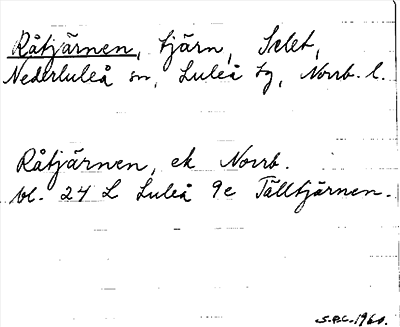 Råtjärnen, tjärn, Selet,
Nederluleå sn, Luleå tg, Norrb. l.
Råtjärnen, ek Norrb.
bl. 24 L Luleå 9e Tälltjärnen.
S.B.C. 1960.